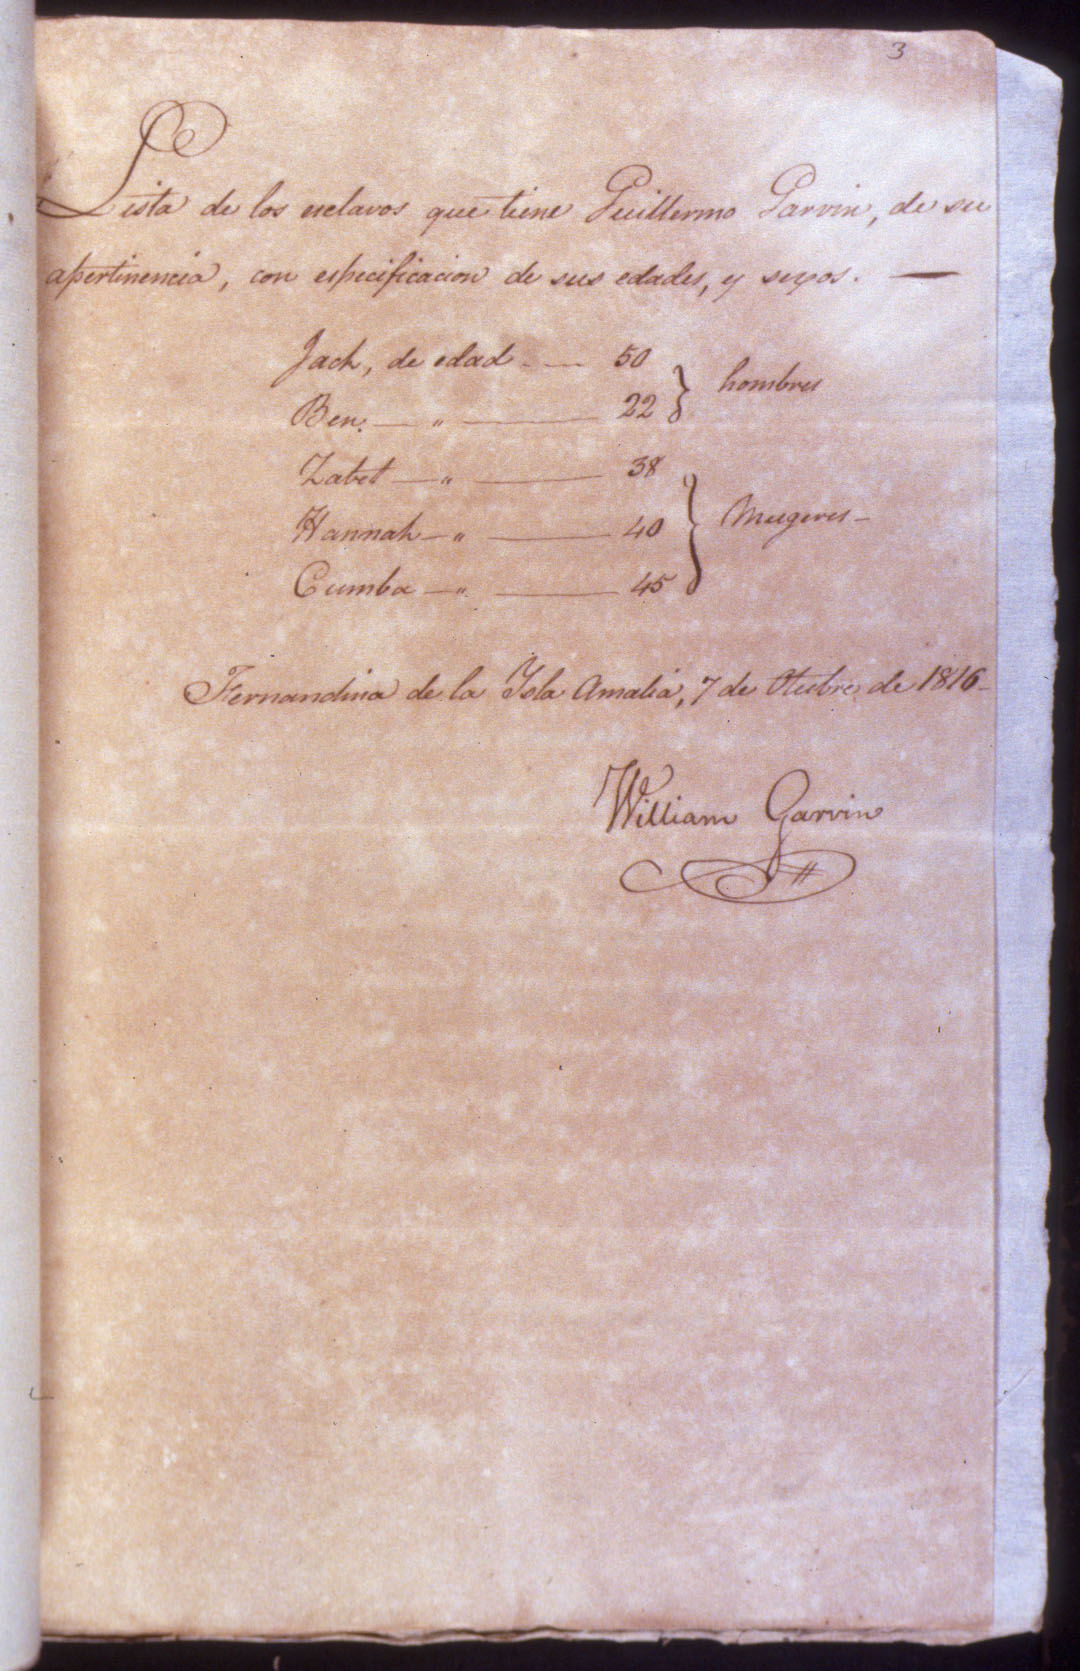 3
Lista de los esclavos que tiene Guillermo Garvin, de su
apertinencia, con especificacion de sus edades, y sexos. —
Jack, de edad - — 50
hombres
Ben. — " — 22
Zabet — " — 38
Hannah — " — 40
Mugeres —
Cumba — " — 45
Fernandina de la Ysla Amalia, 7 de Otubre de 1816 -
William Garvin